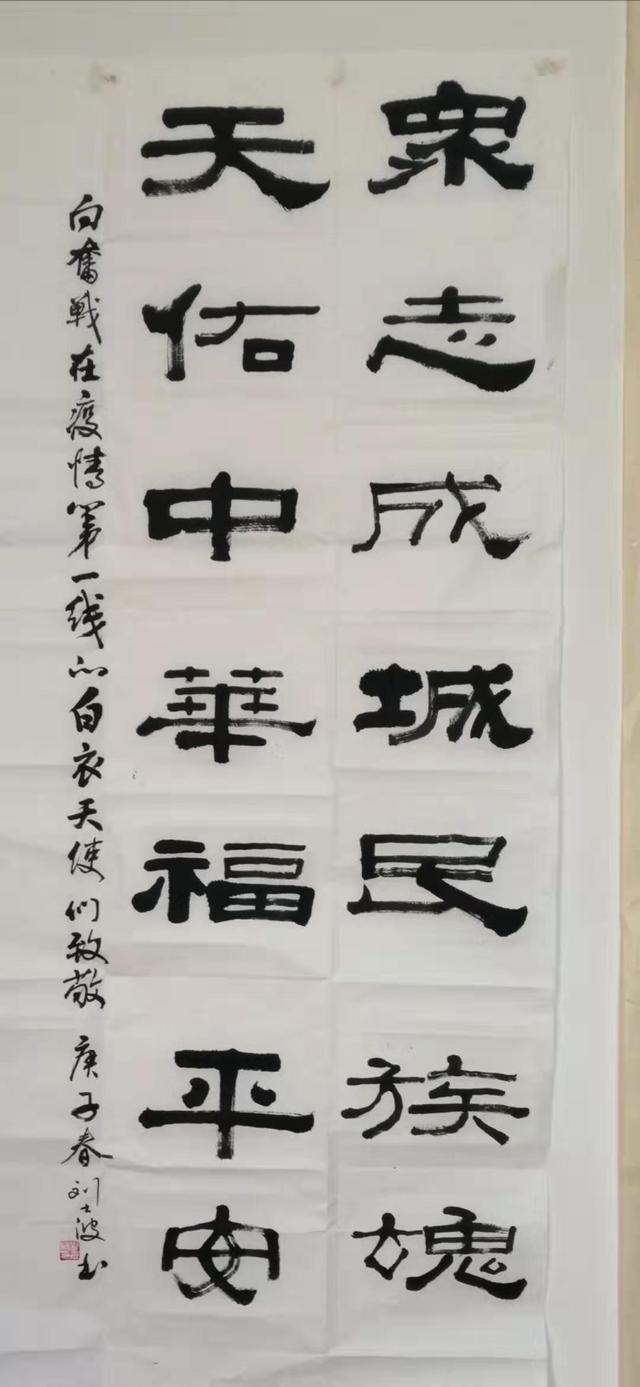 眾志成城民族魂
天佑中華福平安
向奮戰在疫情第一线的白衣天使们致敬 庚子春刘士波书